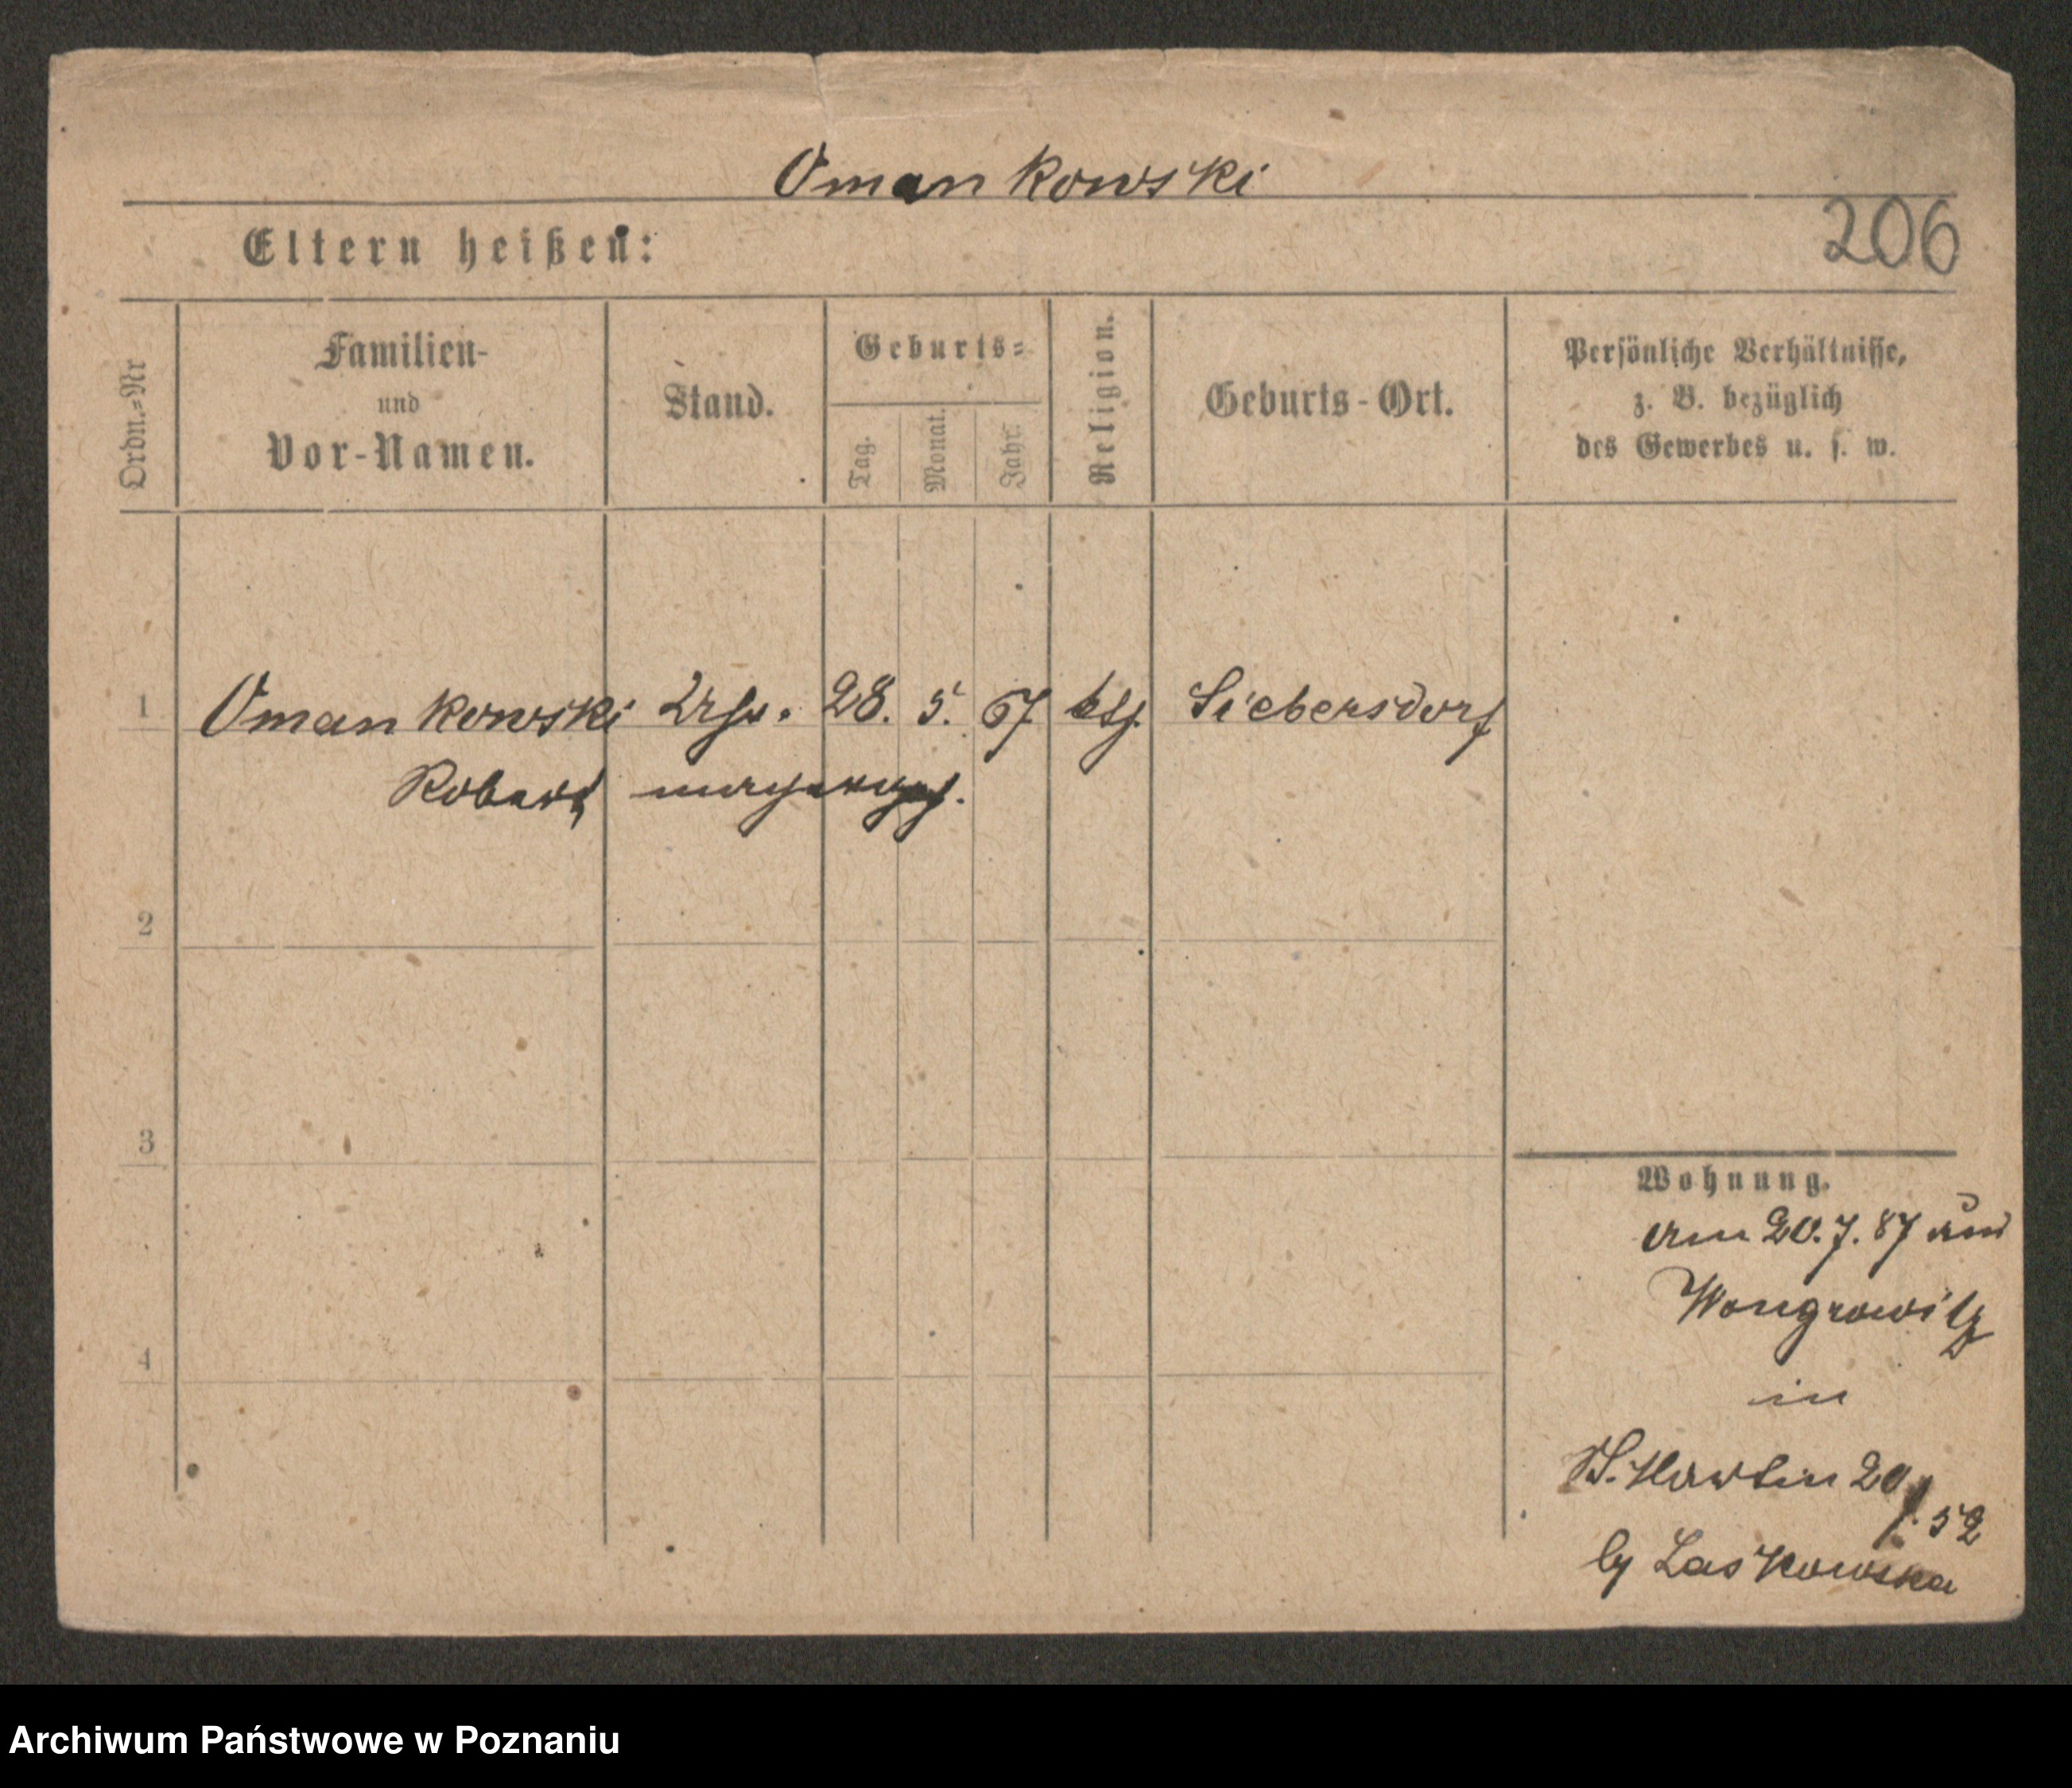 Omankowski
206
Eltern heißen:
Ordn.=Nr
Familien-
und
Vor-Namen.
Stand.
Geburts=
Tag.
Monat.
Jahr.
Religion.
Geburts-Ort.
Persönliche Verhältnisse,
z. B. bezüglich
des Gewerbes u. s. w.
1 Omankowski 28. 5. 67 ktf. Siebersdorf
Robert
2
3
4
Wohnung.
Am 20.7.87 aus
Wongrowitz
in
St. Martin 20
52
by Laskowska
Archiwum Państwowe w Poznaniu